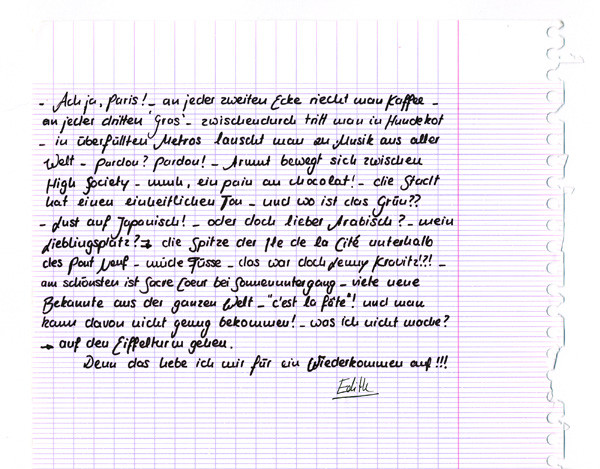 - Ach ja, Paris! - an jeder zweiten Ecke riecht man Kaffee -
an jeder dritten 'Gros' - zwischendurch tritt man in Hundekot
- in überfüllten Metros lauscht man zu Musik aus aller
Welt - pardon? pardon! - Armut bewegt sich zwischen
High Society - mmh, ein pain au chocolat! - die Stadt
hat einen einheitlichen Ton - und wo ist das Grün??
- Lust auf Japanisch! - oder doch lieber Arabisch? - mein
Lieblingsplatz? → die Spitze der Ile de la Cité unterhalb
des Pont Neuf - müde Füsse - das war doch Lenny Kravitz!?! -
am schönsten ist Sacre Coeur bei Sonnenuntergang - viele neue
Bekannte aus der ganzen Welt - "c'est la fête"! und man
kann davon nicht genug bekommen! - was ich nicht mache?
→ auf den Eiffelturm gehen.
Denn das hebe ich mir für ein Wiederkommen auf!!!
Edith